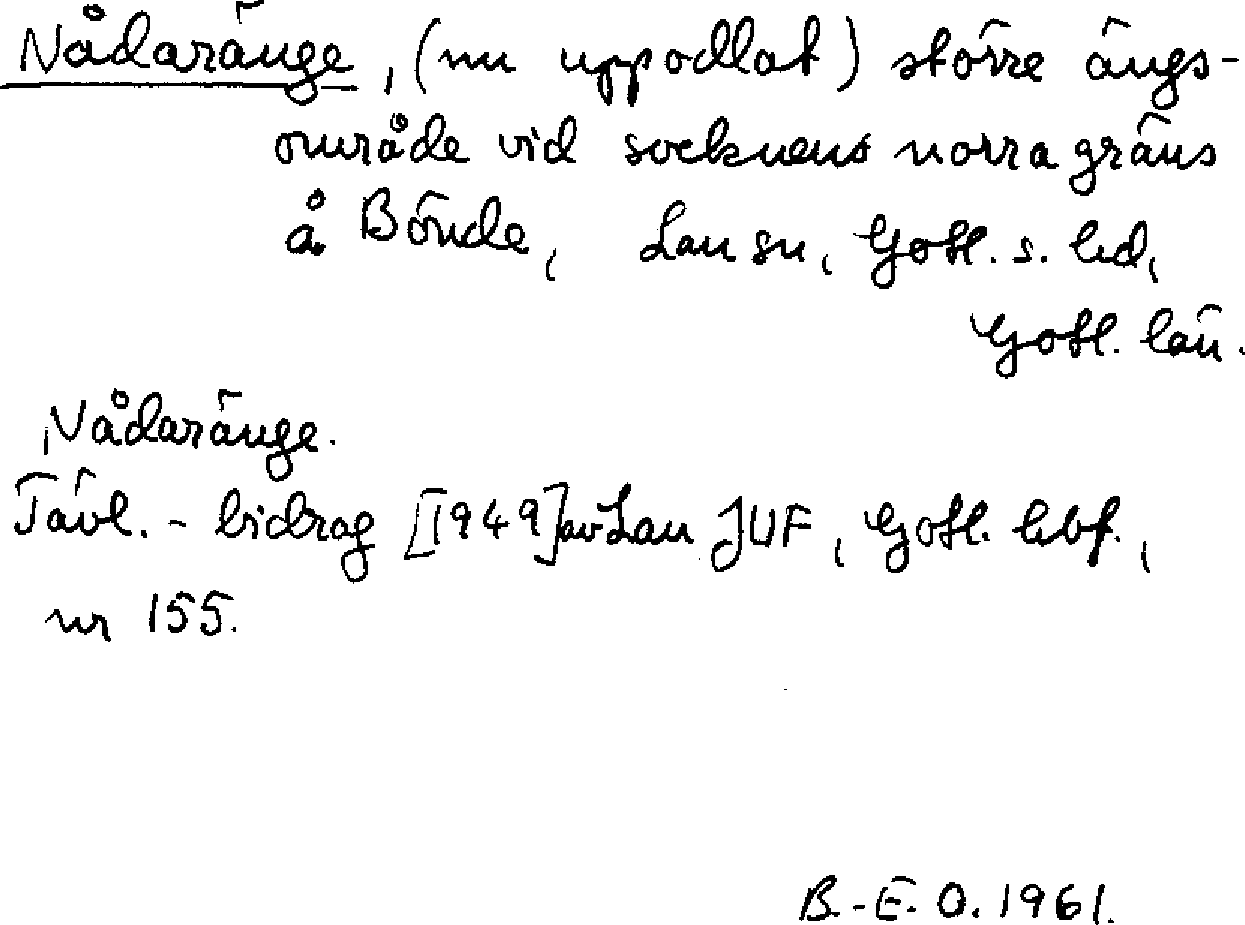 Nådaränge, (nu uppodlat) större ängs-
område vid socknens norra gräns
å Bönde, Lau sn, Gotl. s. hd,
Gotl. län.
Nådaränge.
Tävl. - bidrag [1949] av Lau JUF, Gotl. hbf.,
nr 155.
B.-E. O. 1961.